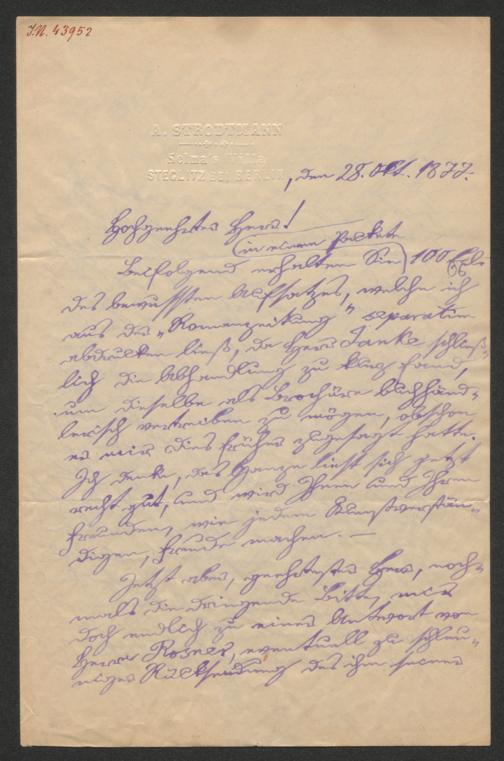 I.N. 43952
A. STRODTMANN
Selma's Villa
STEGLITZ BEI BERLIN
, den 28. Okt. 1877.
Hochgeehrter Herr!
(in einem Packete
Beifolgend erhalten Sie) 100 Ex
des bewussten Aufsatzes, welche ich
aus der „Romanzeitung" separatim
abdrucken ließ, da Herr Janke schließ-
lich die Abhandlung zu kurz fand,
um dieselbe als Brochüre buchhänd-
lerisch vertreiben zu mögen, obschon
er mir dies früher zugesagt hatte.
Ich denke, das Ganze liest sich jetzt
recht gut, und wird Ihnen und Ihren
Freunden, wie jedem Kunstverstän-
digen, Freude machen. —
Jetzt aber, geehrtester Herr, noch-
mals die dringende Bitte, mir
doch endlich zu einer Antwort von
Herrn Rosner, eventuell zu schleu-
niger Rücksendung des ihm seiner